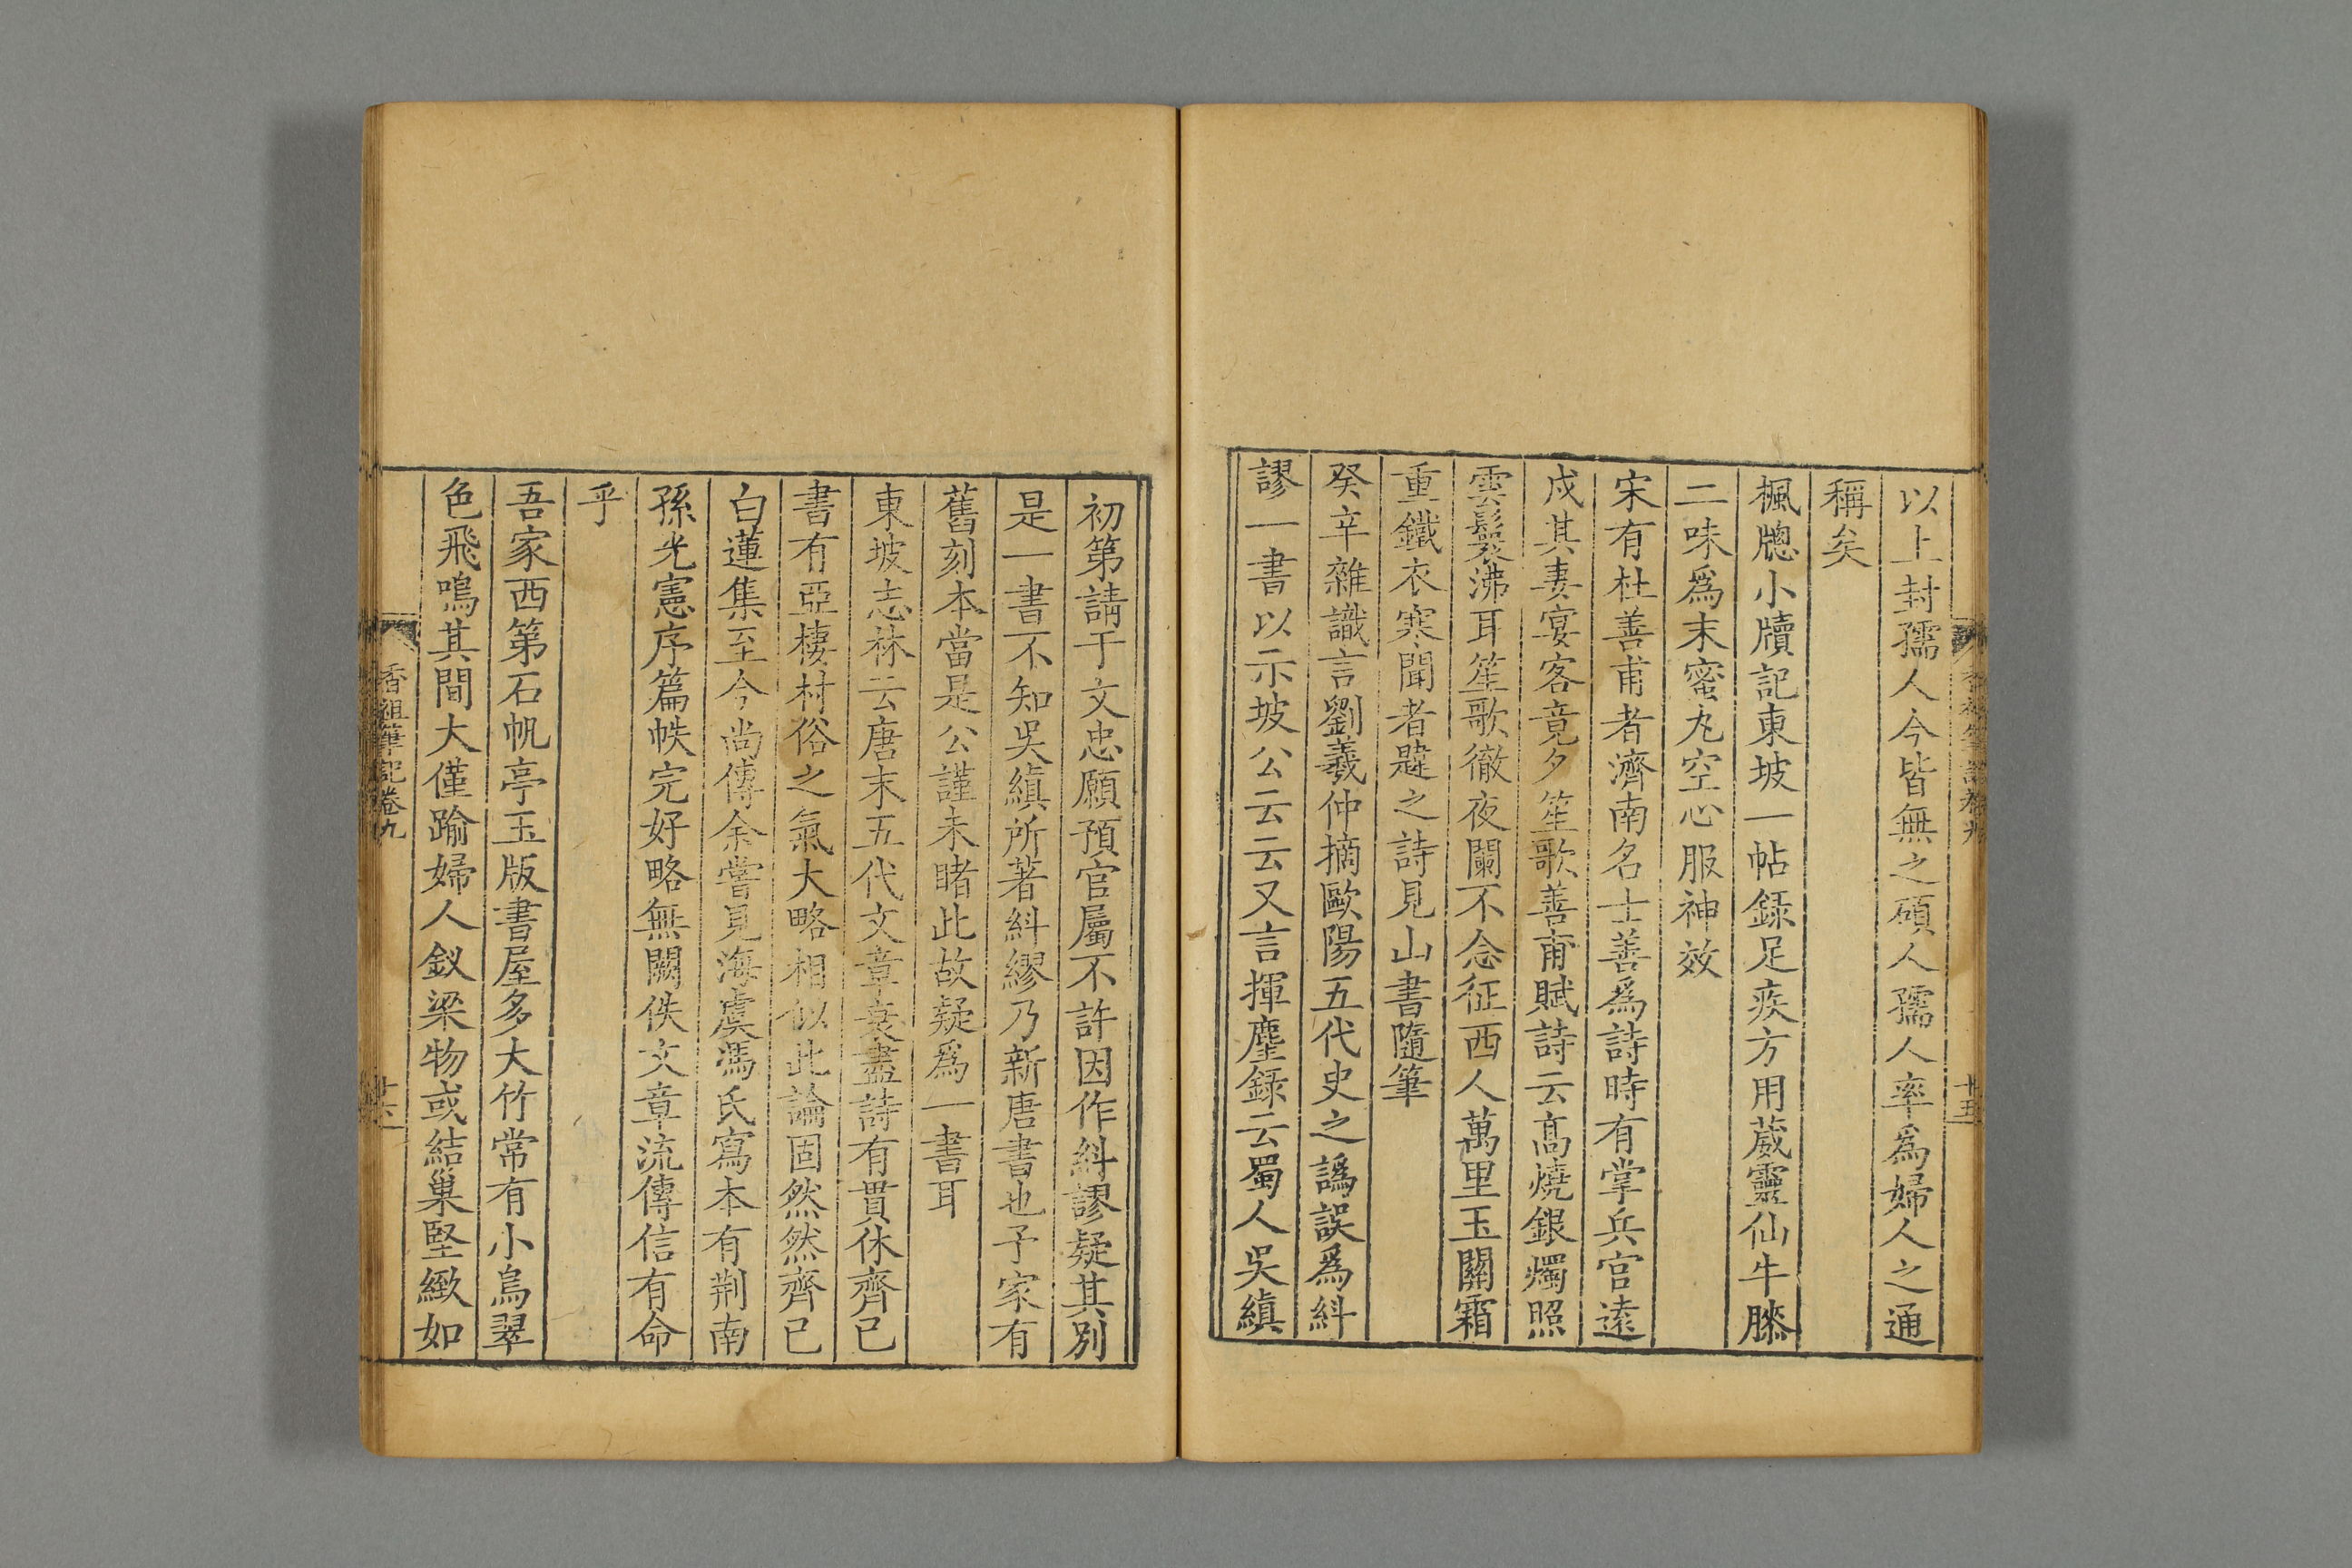 以上封孺人今皆無之碩人孺人率為婦人之通
稱矣
楓牕小牘記東坡一帖録足疾方用葳靈仙牛膝
二味爲末蜜丸空心服神效
宋有杜善甫者濟南名士善為詩時有掌兵官遠
戍其妻宴客竟夕笙歌善甫賦詩云髙燒銀燭照
雲鬟沸耳笙歌徹夜闌不念征西人萬里玉關霜
重鐵衣寒聞者韙之詩見山書隨筆
癸辛雜識言劉羲仲摘歐陽五代史之譌誤爲糾
謬一書以示坡公云云又言揮麈録云蜀人吳縝
初第請于文忠願預官屬不許因作糾謬疑其別
是一書不知吳縝所著糾繆乃新唐書也予家有
舊刻本當是公謹未睹此故疑爲一書耳
東坡志林云唐末五代文章衰盡詩有貫休齊已
書有亞棲村俗之氣大略相似此論固然然齊已
白蓮集至今尚傳余嘗見海虞馮氏寫本有荆南
孫光憲序篇帙完好略無闕佚文章流傳信有命
乎
吾家西第石帆亭玉版書屋多大竹常有小鳥翠
色飛鳴其間大僅踰婦人釵梁物或結巢堅緻如
香祖筆記卷九